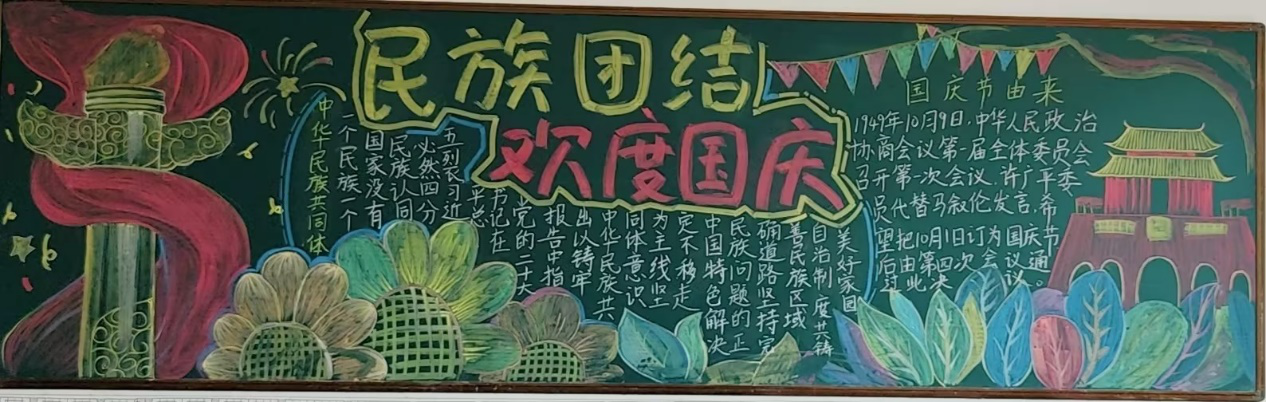 民族团结
欢度国庆
中华民族共同体
一个民族一个
国家没有
民族认同
必然四分
五裂习近
平总
书记在
党的二十大
报告中指
出以铸牢
中华民族共
同体意识
为主线坚
定不移走
中国特色解决
民族问题的正
确道路坚持完
善民族区域
自治制度共铸
美好家园
国庆节由来
1949年10月9日,中华人民政治
协商会议第一届全体委员会
召开第一次会议.许广平委
员代替马叙伦发言,希
望把10月1日订为国庆节
后由第四次会议通
过此决议。